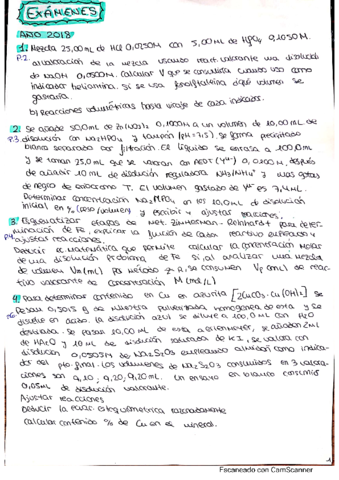 EXÁMENES
AÑO 2018
1. Mezcla 25,00 mL de HCl 0,0250M con 5,00 mL de H3PO4 0,1050M.
P.2. a) valoración de la mezcla usando react. valorante una disolució
de NaOH 0,0500M. Calcular V que se consumiría cuando uso como
indicador heliantina. Si se usa fenolftaleína ¿qué volumen se
gastaría.
b) reacciones volumétricas hasta viraje de cada indicador.
2. Se añade 50,0mL de Zn(NO3)2 0,1000M a un volumen de 10,00 mL de
P.3. disolución con Na2HPO4 y tampón (pH=7,5). Se forma precipitado
blanco separado por filtración. El líquido se enrasa a 100,0m
y se toman 25,0mL que se valoran con AEDT (Y4-) 0,1000 M, después
de añadir 10 mL de disolución reguladora NH3/NH4+ y unas gotas
de negro de eriocromo T. El volumen gastado de Y4- es 7,4mL.
Determinar concentración Na2HPO4 en los 10,0mL de disolución
inicial en % (peso/volumen) y escribir y ajustar reacciones.
3. Esquematizar etapas de Met. Zimmerman-Reinhardt para deter-
minación de Fe, explicar la función de cada reactivo
P.4 ajustar reacciones.
Deducir E. Matemática que permite calcular la concentración molar
de una disolución problema de Fe si al analizar una
de volumen Vm (mL) por método Z.R. se consumen Vp (mL) de reac-
tivo valorante de concentración M (mol/L)
4. Para determinar contenido en Cu en azurita [2CuCO3·Cu(OH)2] se
Pesan 0,3015 g de muestra pulverizada homogénea de esta y se
P.6 disuelve en ácido. La disolución azul se diluye a 100,0 mL con H2O
destilada. Se pasan 10,00 mL de esta a erlenmeyer, se añaden 2mL
de HAcO y 10 mL de disolución saturada de KI, se valora con
disolución 0,0505M de Na2S2O3 empleando almidón como indica-
dor del pto. final. Los volúmenes de Na2S2O3 consumidos en 3 valora-
ciones son 9,10; 9,20; 9,20mL. Un ensayo en blanco consumió
0,05mL de disolución valorante.
Ajustar reacciones
Deducir la ecuac. estequiométrica razonadamente
Calcular contenido % de Cu en el mineral.
1
Escaneado con CamScanner